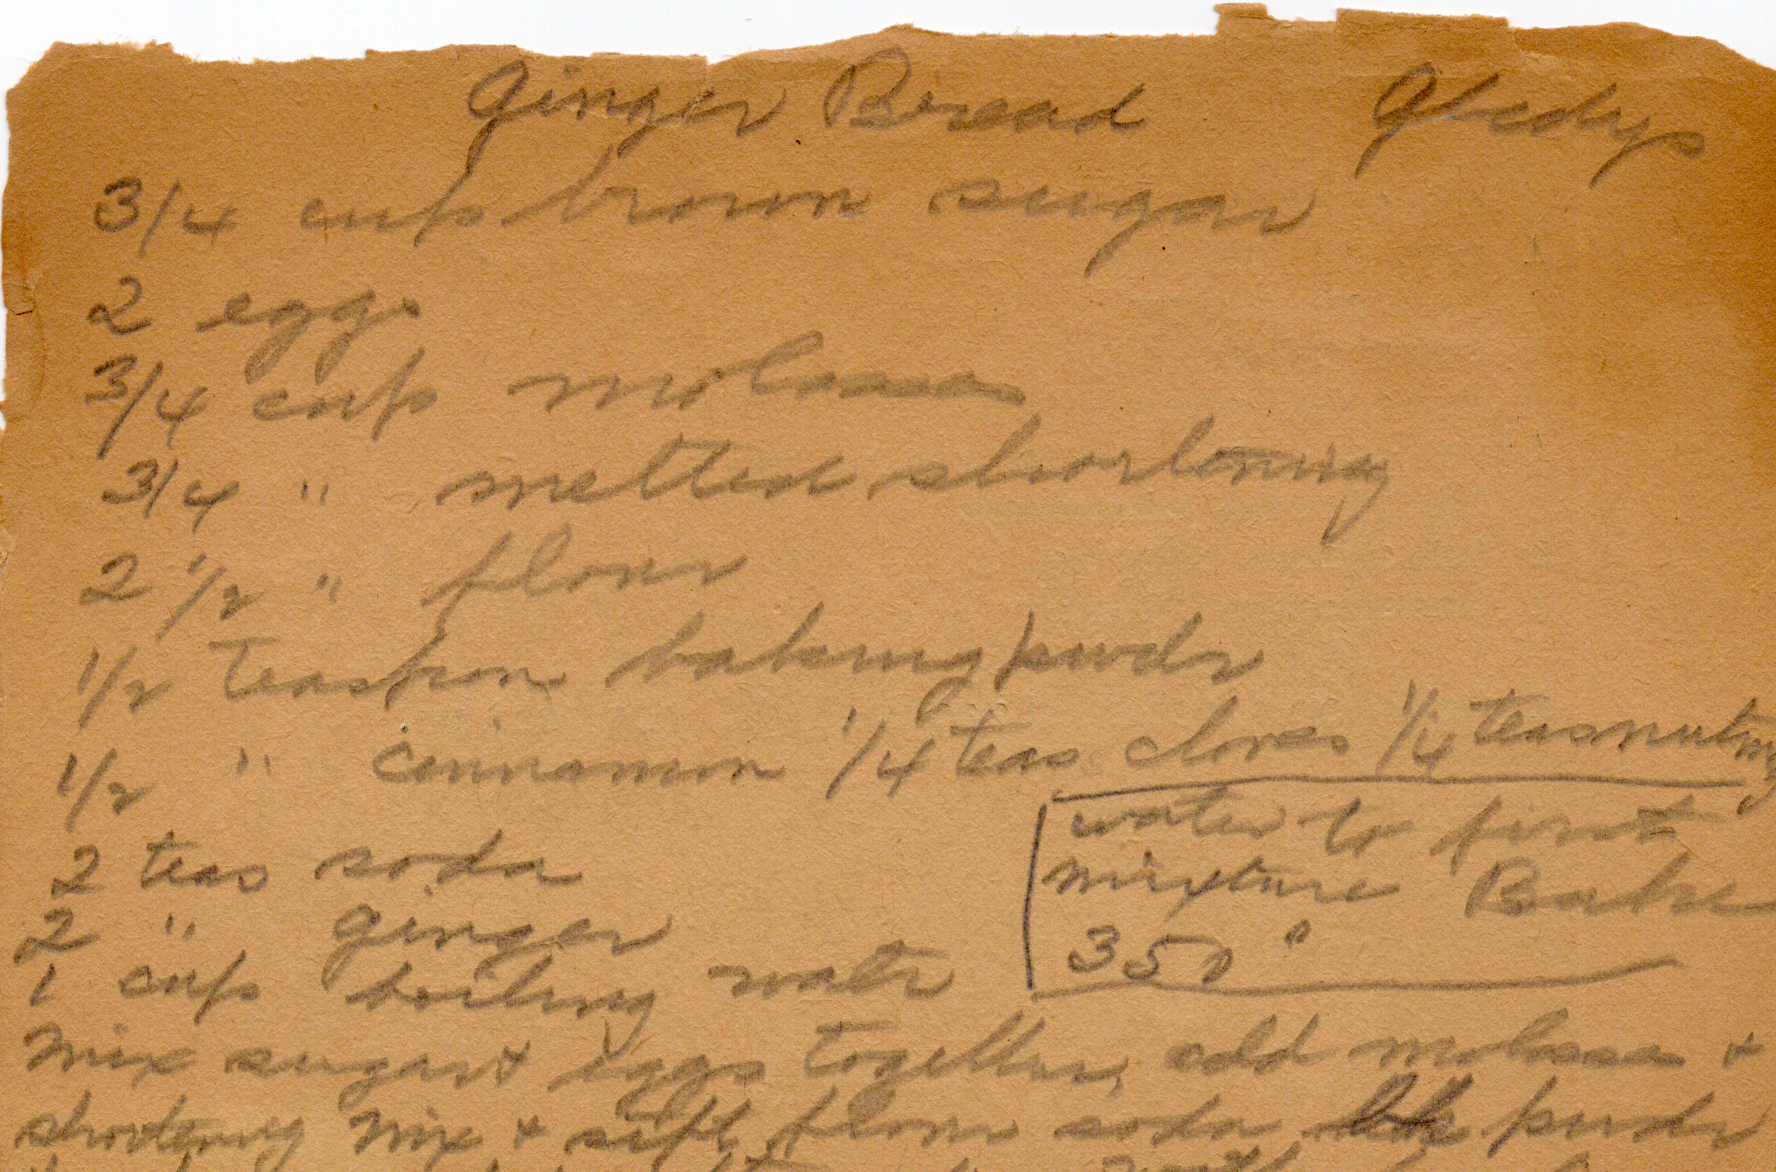 Ginger Bread Gladys
3/4 cup brown sugar
2 eggs
3/4 cup molasses
3/4 " melted shortening
2 1/2 " flour
1/2 teaspon baking pwdr
1/2 " cinnamon 1/4 teas cloves 1/4 teas nutmg
2 teas soda
2 " ginger
1 cup boiling watr
water to first
mixture Bake
350°
Mix sugar & eggs together, add molasses &
shortening Mix & sift flour soda bk pwdr